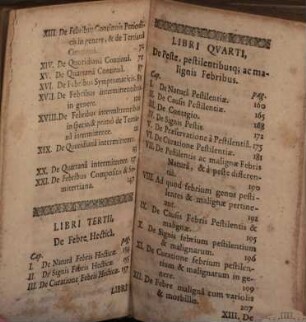 XIII. De Febribus Continuis Periodi-
cis in genere, & de Tertiana
Continua.
XIV. De Quotidiana Continua.
XV. De Quartana Continua.
XVI. De Febribus Symptomaticis.
XVII. De Febribus intermittentibus
in genere.
XVIII. De Febribus intermittentibus
in specie & primo de Tertia-
na intermittente.
XIX. De Quotidiana intermittente.
XX. De Quartana intermittente
XXI. De Febribus Compositis &
LIBRI TERTII,
De Febre Hectica.
Cap. pag.
I. De Naturâ Febris Hecticæ
II. De Signis Febris Hecticæ
III. De Curatione Febris Hecticæ
LIBRI
LIBRI QVARTI,
De Peste, pestilentibusq; ac ma-
lignis Febribus.
Cap. pag.
I. De Naturâ Pestilentiæ. 160
II. De Causis Pestilentiæ. 165
III. De Contagio. 168
IV. De Signis Pestis. 172
V. De Præservatione à Pestilentiâ. 175
VI. De Curatione Pestilentiæ.
VII. De Pestilentis ac malignæ Febris
Naturâ, & à peste differen-
tiâ.
VIII. Ad quod febrium genus pesti-
lentes & malignæ pertine-
ant.
IX. De Causis Febris Pestilentis &
malignæ. 195
X. De Signis febrium pestilentium
& malignarum. 196
XI. De Curatione febrium pestilen-
tium & malignarum in gene-
re.
XII. De Febre malignâ cum variolis
& morbillis. 207
XIII. De